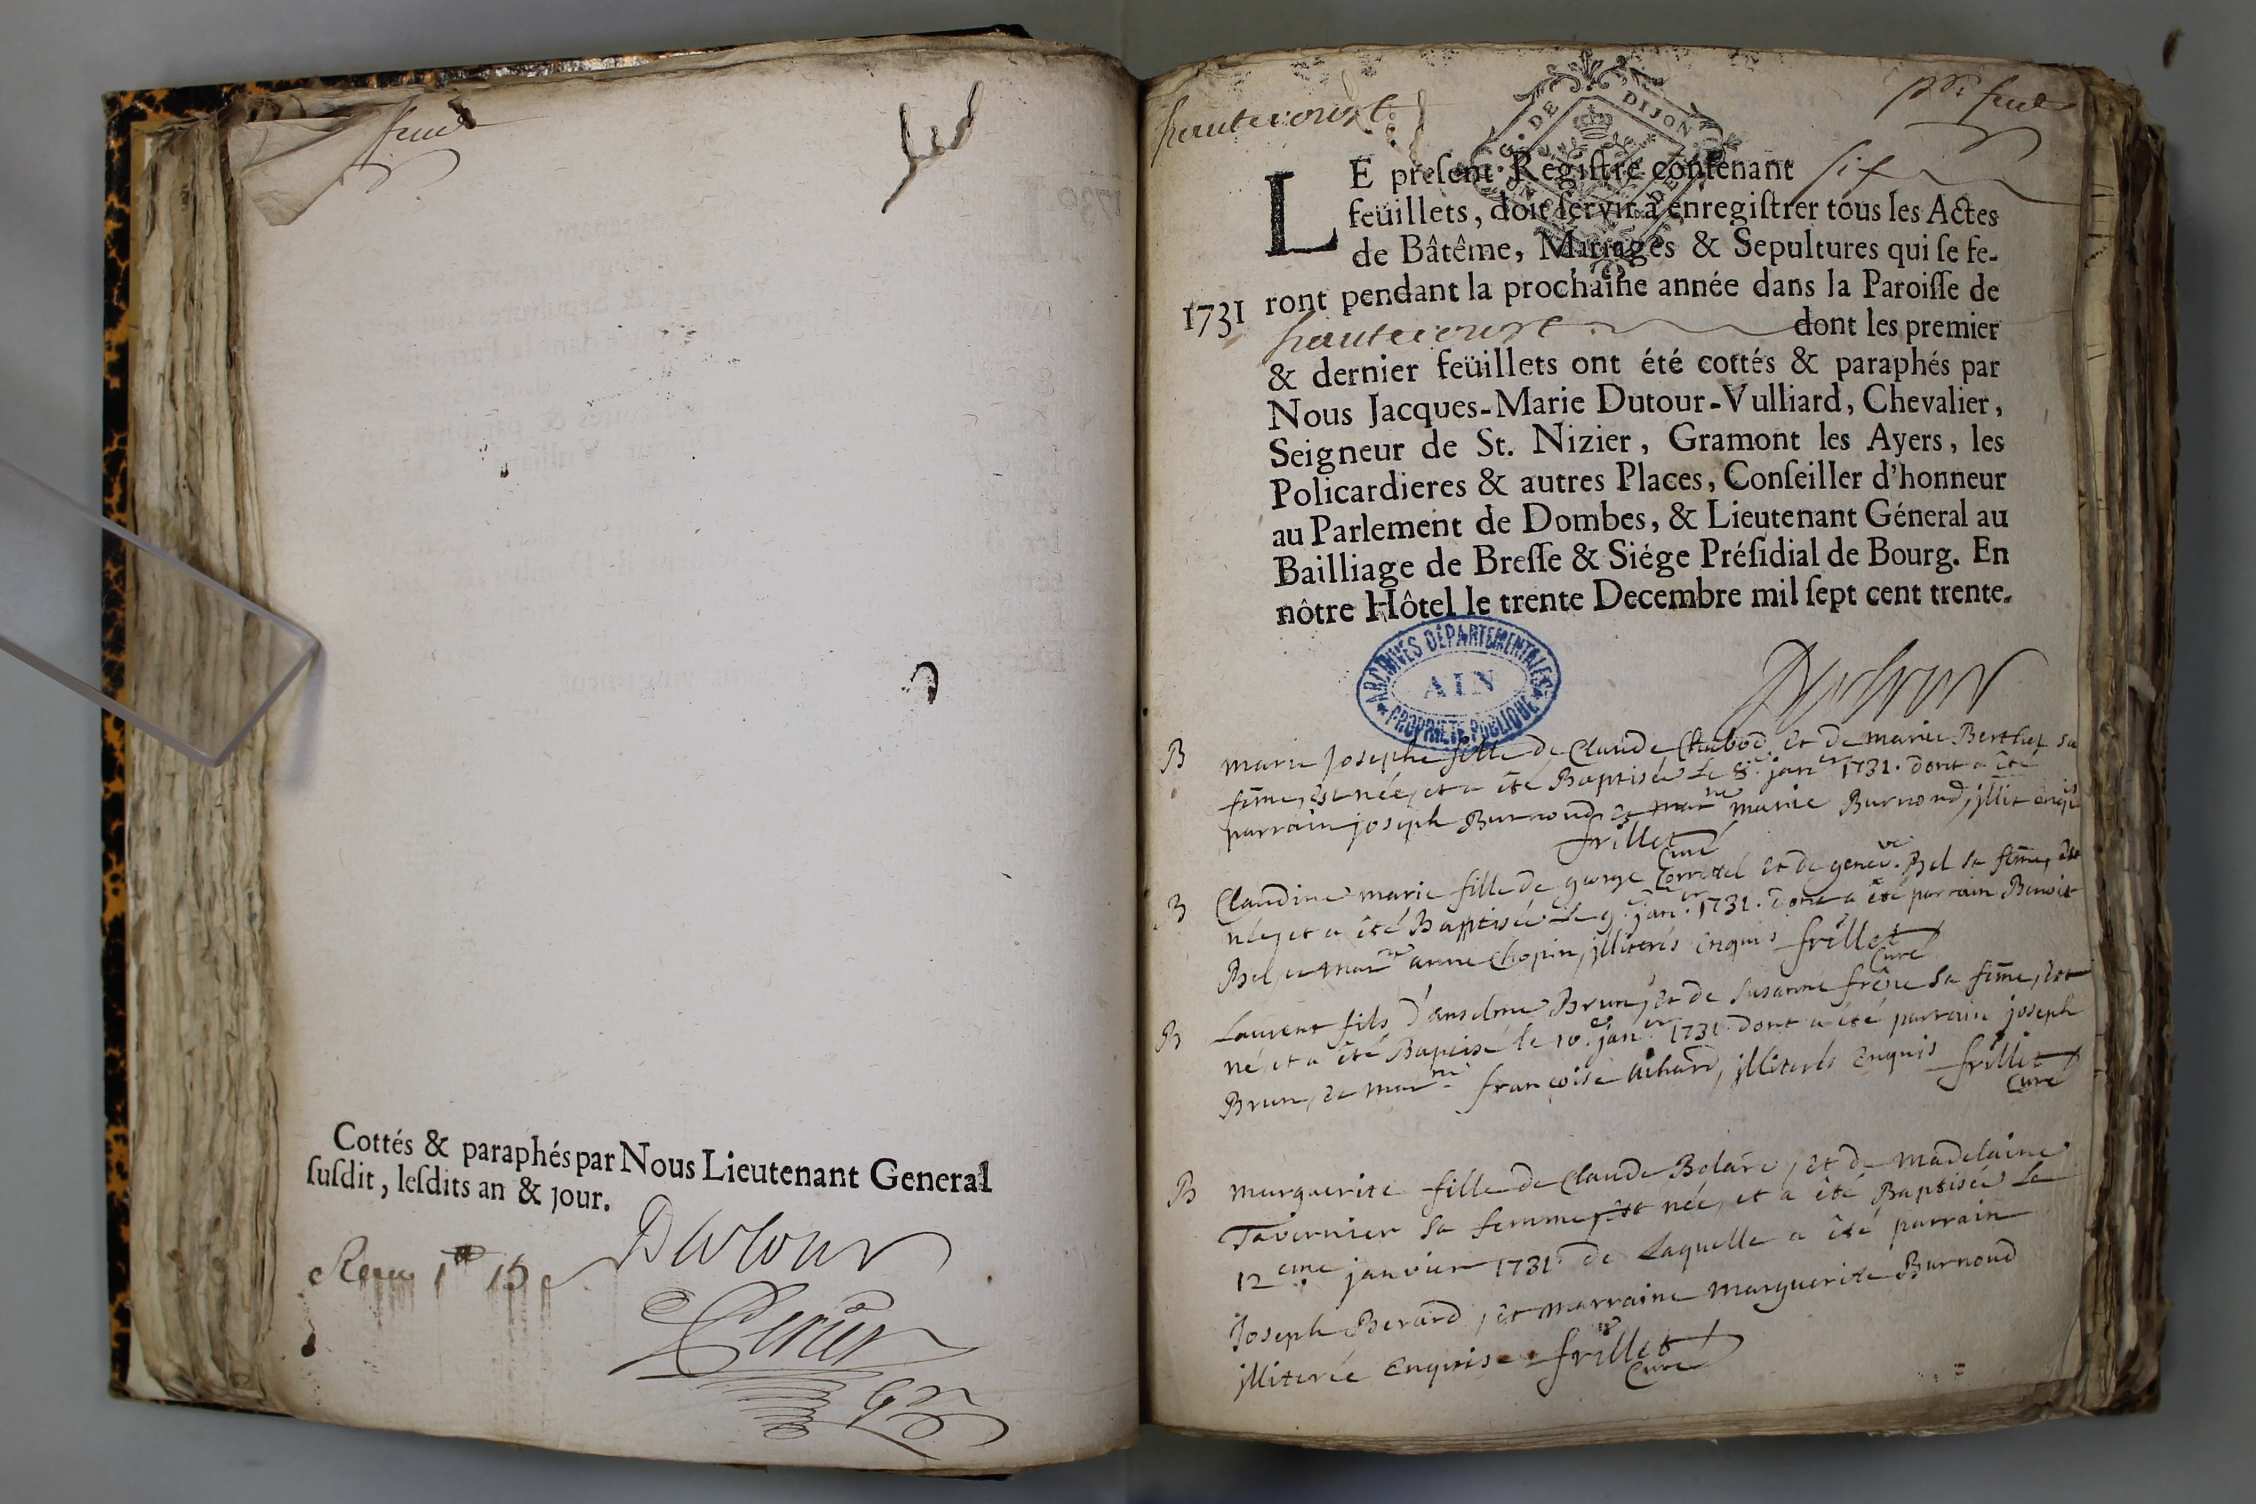 feuil
Cottés & paraphés par Nous Lieutenant General
ſuſdit, leſdits an & jour.
Dutour
hautecourt
pr. feuil
G. DE DIJON
LE preſent Regiſtre contenant six
feüillets, doit ſervir à enregiſtrer tous les Actes
de Bâtême, Mariages & Sepultures qui ſe fe-
1731 ront pendant la prochaine année dans la Paroiſſe de
hautecourt dont les premier
& dernier feüillets ont été cottés & paraphés par
Nous Jacques-Marie Dutour-Vulliard, Chevalier,
Seigneur de St. Nizier, Gramont les Ayers, les
Policardieres & autres Places, Conſeiller d'honneur
au Parlement de Dombes, & Lieutenant Géneral au
Bailliage de Breſſe & Siége Préſidial de Bourg. En
nôtre Hôtel le trente Decembre mil ſept cent trente.
ARCHIVES DÉPARTEMENTALES
AIN
PROPRIÉTÉ PUBLIQUE
Dutour
B marie Josephe fille de Claude Chabod, et de marie Berthet sa
fême, est née, et a êté Baptisée le 8.e janer 1731. dont a êté
parrain joseph Burnoud et marne marie Burnoud, jllit enqis
frillet
Curé
B Claudine marie fille de george Corretel et de genevve. Bel sa fême, est
née, et a êté Baptisée le 9.e janer. 1731. dont a êté parrain Benoit
Bel, et marne anne Chopin, jlliterés enquis frillet
Curé
B Laurent fils d'anselme Brun, et de Susanne frêne sa fême, est
né, et a êté Baptisé le 10.e janer. 1731. dont a êté parrain joseph
Brun, et marne françoise Achard, jlliterés Enquis frillet
Curé
B Marguerite fille de Claude Bolare, et de Madelaine
Tavernier sa femme, est née, et a êté Baptisée le
12eme janvier 1731. de Laquelle a êté parrain
Joseph Berard, et marraine marguerite Burnoud
jlliterée Enquise frillet
Curé